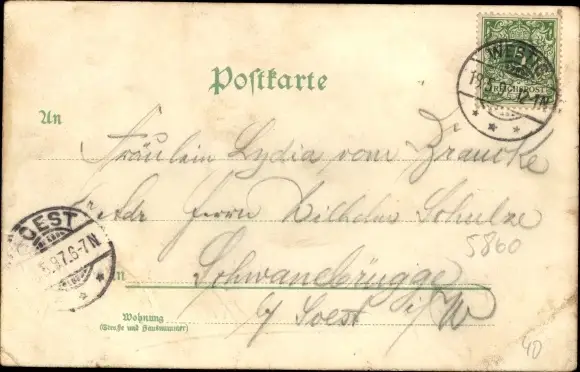 Postkarte
WESTIG
19.5. 12-1N
REICHSPOST
An
Fräulein Lydia vom Braucke
Adr Herrn Wilhelm Schulze
5860
SOEST
5.97.6-7N
in Schwanebrügge
b/ Soest i/W
Wohnung
(Straße und Hausnummer)
40